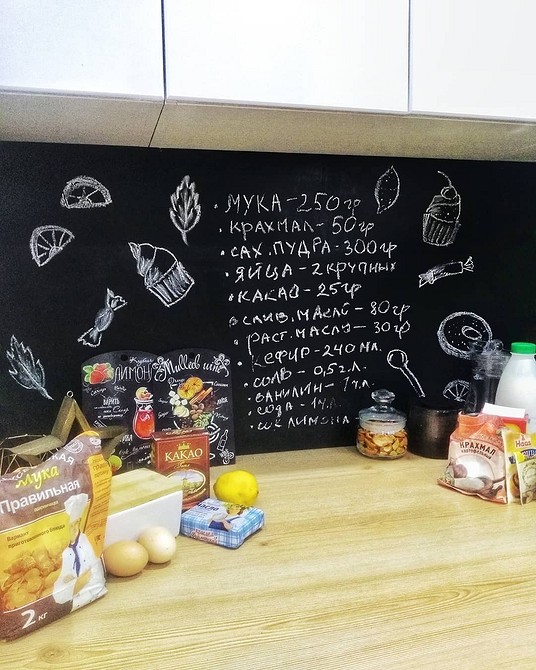 • МУКА - 250 гр
• КРАХМАЛ - 50 гр
• САХ. ПУДРА - 300 гр
• ЯЙЦА - 2 КРУПНЫХ
• КАКАО - 25 гр
• СЛИВ. МАСЛО - 80 гр
• РАСТ. МАСЛО - 30 гр
• КЕФИР - 240 МЛ.
• СОЛЬ - 0,5 г.л.
• ВАНИЛИН - 1 ч.л.
• СОДА - 1 ч.л.
• СОК ЛИМОНА
ЛИМОН
Mulled wine
КАКАО
Мука
Правильная
2 кг
МАСЛО
КРАХМАЛ
картофельный
Haas